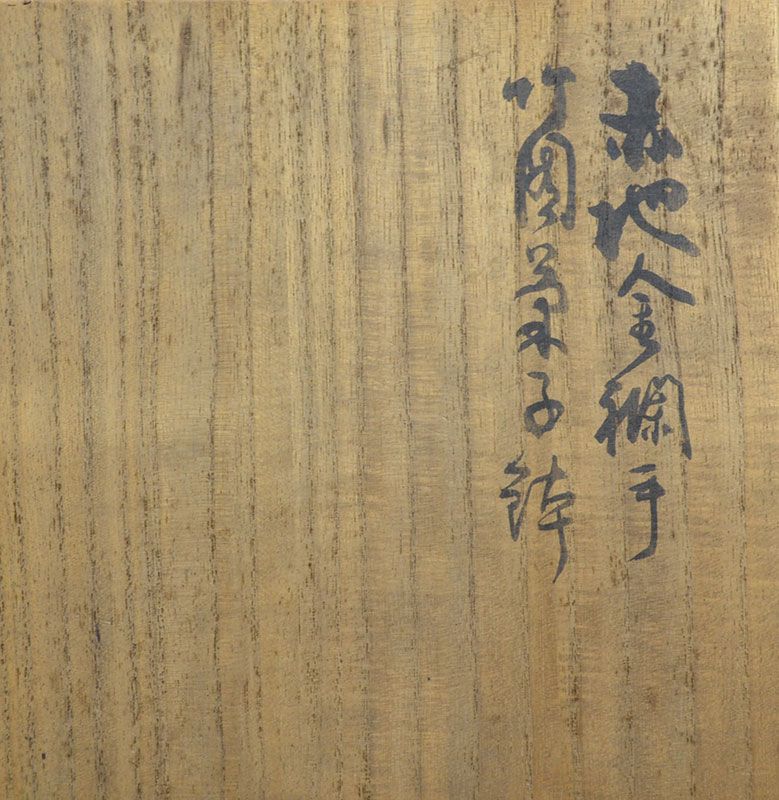 赤地金襴手
竹図菓子鉢